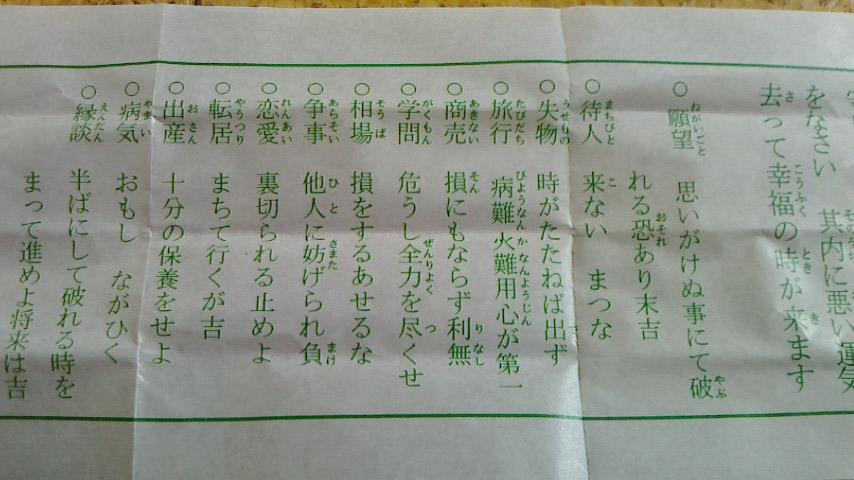 をなさい 其内に悪い運気
去って幸福の時が来ます
○願望 思いがけぬ事にて破
れる恐あり末吉
○待人 来ない まつな
○失物 時がたたねば出ず
○旅行 病難火難用心が第一
○商売 損にもならず利無
○学問 危うし全力を尽くせ
○相場 損をするあせるな
○争事 他人に妨げられ負
○恋愛 裏切られる止めよ
○転居 まちて行くが吉
○出産 十分の保養をせよ
○病気 おもし ながひく
○縁談 半ばにして破れる時を
まって進めよ将来は吉